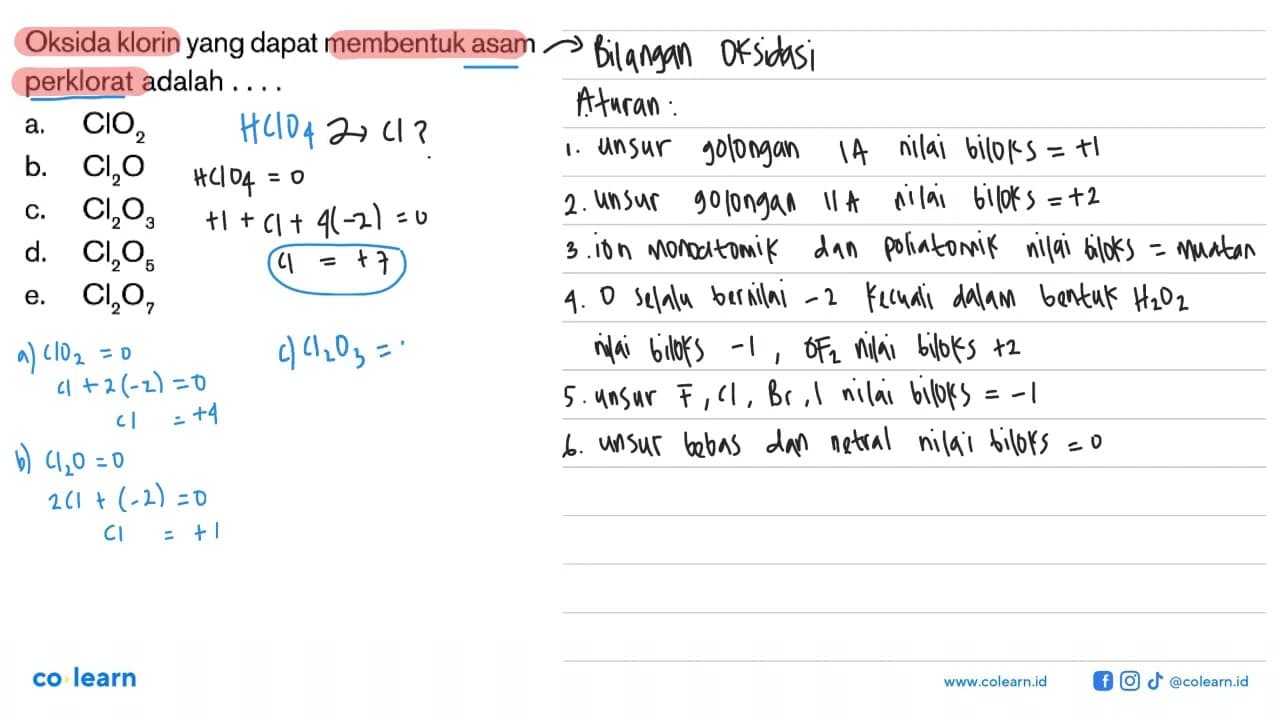 Oksida klorin yang dapat membentuk asam
perklorat adalah . . . .
a. ClO₂
b. Cl₂O
c. Cl₂O₃
d. Cl₂O₅
e. Cl₂O₇
HClO₄ → Cl ?
HClO₄ = 0
+1 + Cl + 4(-2) = 0
Cl = +7
a) ClO₂ = 0
Cl + 2(-2) = 0
Cl = +4
b) Cl₂O = 0
2Cl + (-2) = 0
Cl = +1
c) Cl₂O₃ =
→ Bilangan Oksidasi
Aturan :
1. unsur golongan IA nilai biloks = +1
2. unsur golongan IIA nilai biloks = +2
3. ion monoatomik dan poliatomik nilai biloks = muatan
4. O selalu bernilai -2 kecuali dalam bentuk H₂O₂
nilai biloks -1 , OF₂ nilai biloks +2
5. unsur F, Cl, Br, I nilai biloks = -1
6. unsur bebas dan netral nilai biloks = 0
co·learn
www.colearn.id
@colearn.id